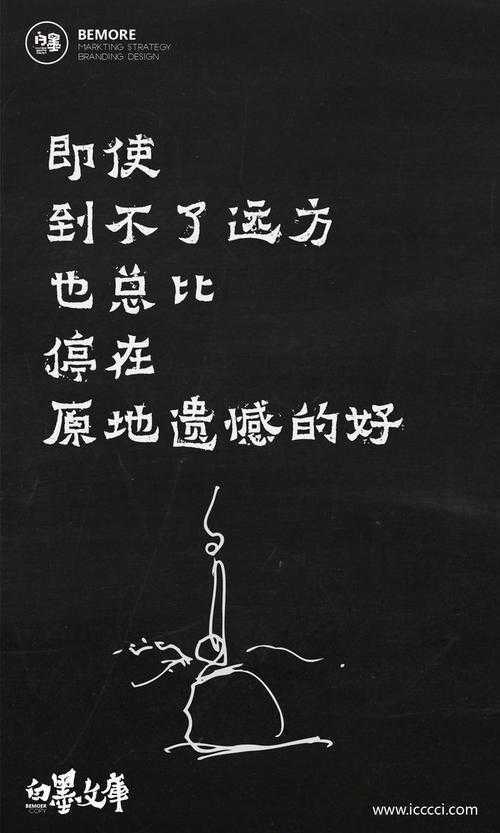 白墨
BEMORE
MARKTING STRATEGY
BRANDING DESIGN
即使
到不了远方
也总比
停在
原地遗憾的好
白墨文库
BEMOER
COPY
www.icccci.com